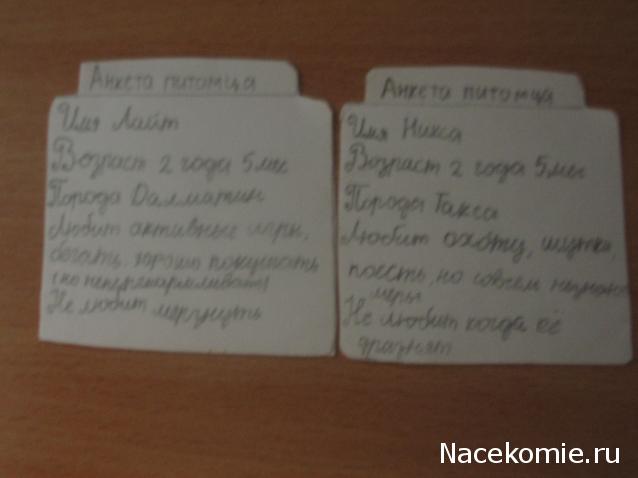 Анкета питомца
Имя Лайт
Возраст 2 года 5мес
Порода Далматин
Любит активные игры,
бегать, хорошо покушать
(но не перекармливать)
Не любит мёрзнуть
Анкета питомца
Имя Никса
Возраст 2 года 5мес
Порода Такса
Любит охоту, шутки,
поесть, но совсем
меры
Не любит когда её
дразнят
Nacekomie.ru